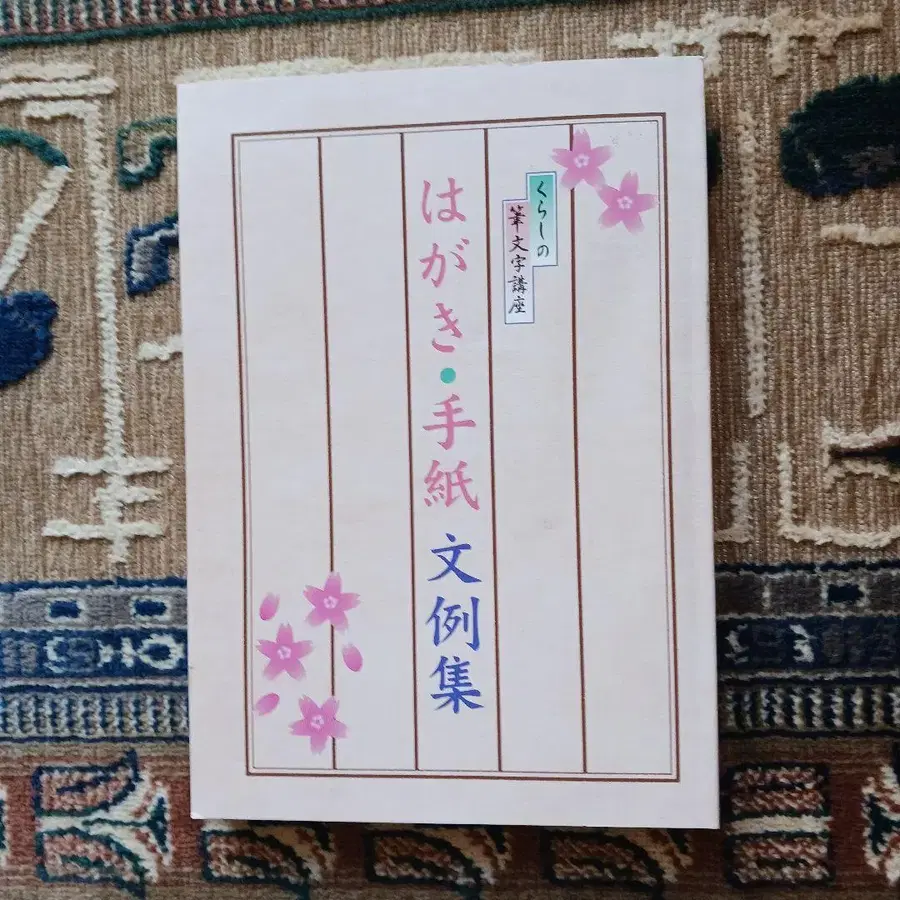 くらしの
筆文字講座
はがき・手紙 文例集